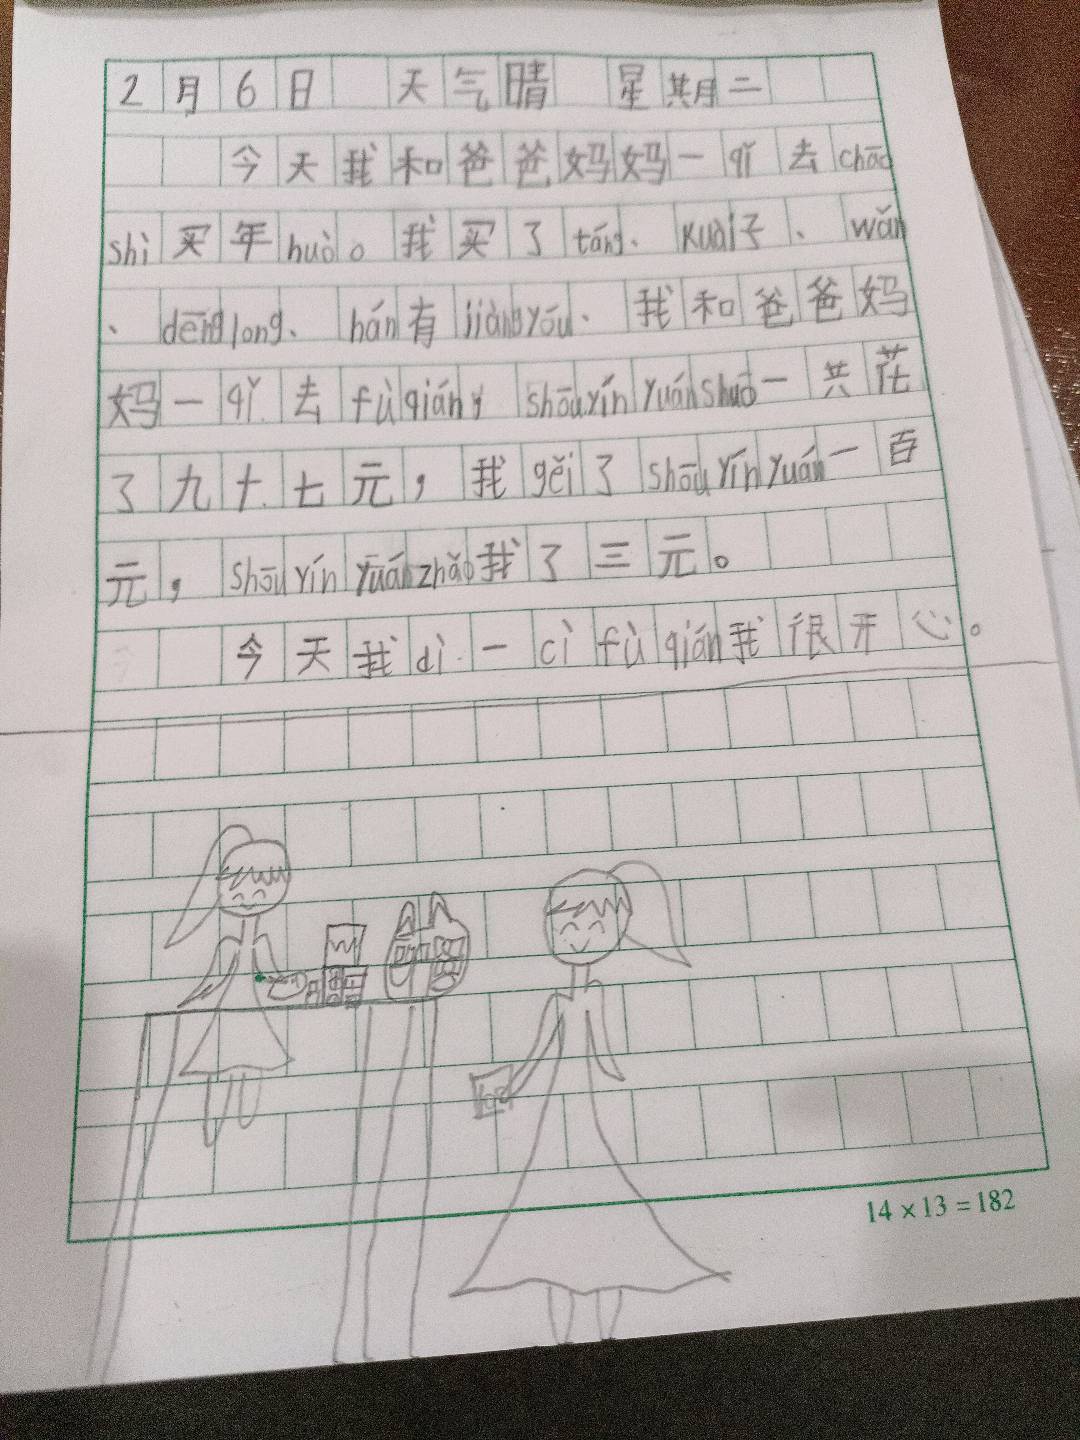 2月6日 天气晴 星期二
今天我和爸爸妈妈一qǐ去chāo
shì买年huò。我买了táng、kuài子、wǎn
、dēnglong、hán有jiàngyóu、我和爸爸妈
妈一qǐ去fùqián,shōuyínyuánshuō一共花
了九十七元，我gěi了shōuyínyuán一百
元，shōuyínyuánzhǎo我了三元。
今天我dì一cì fùqián我很开心。
14×13=182